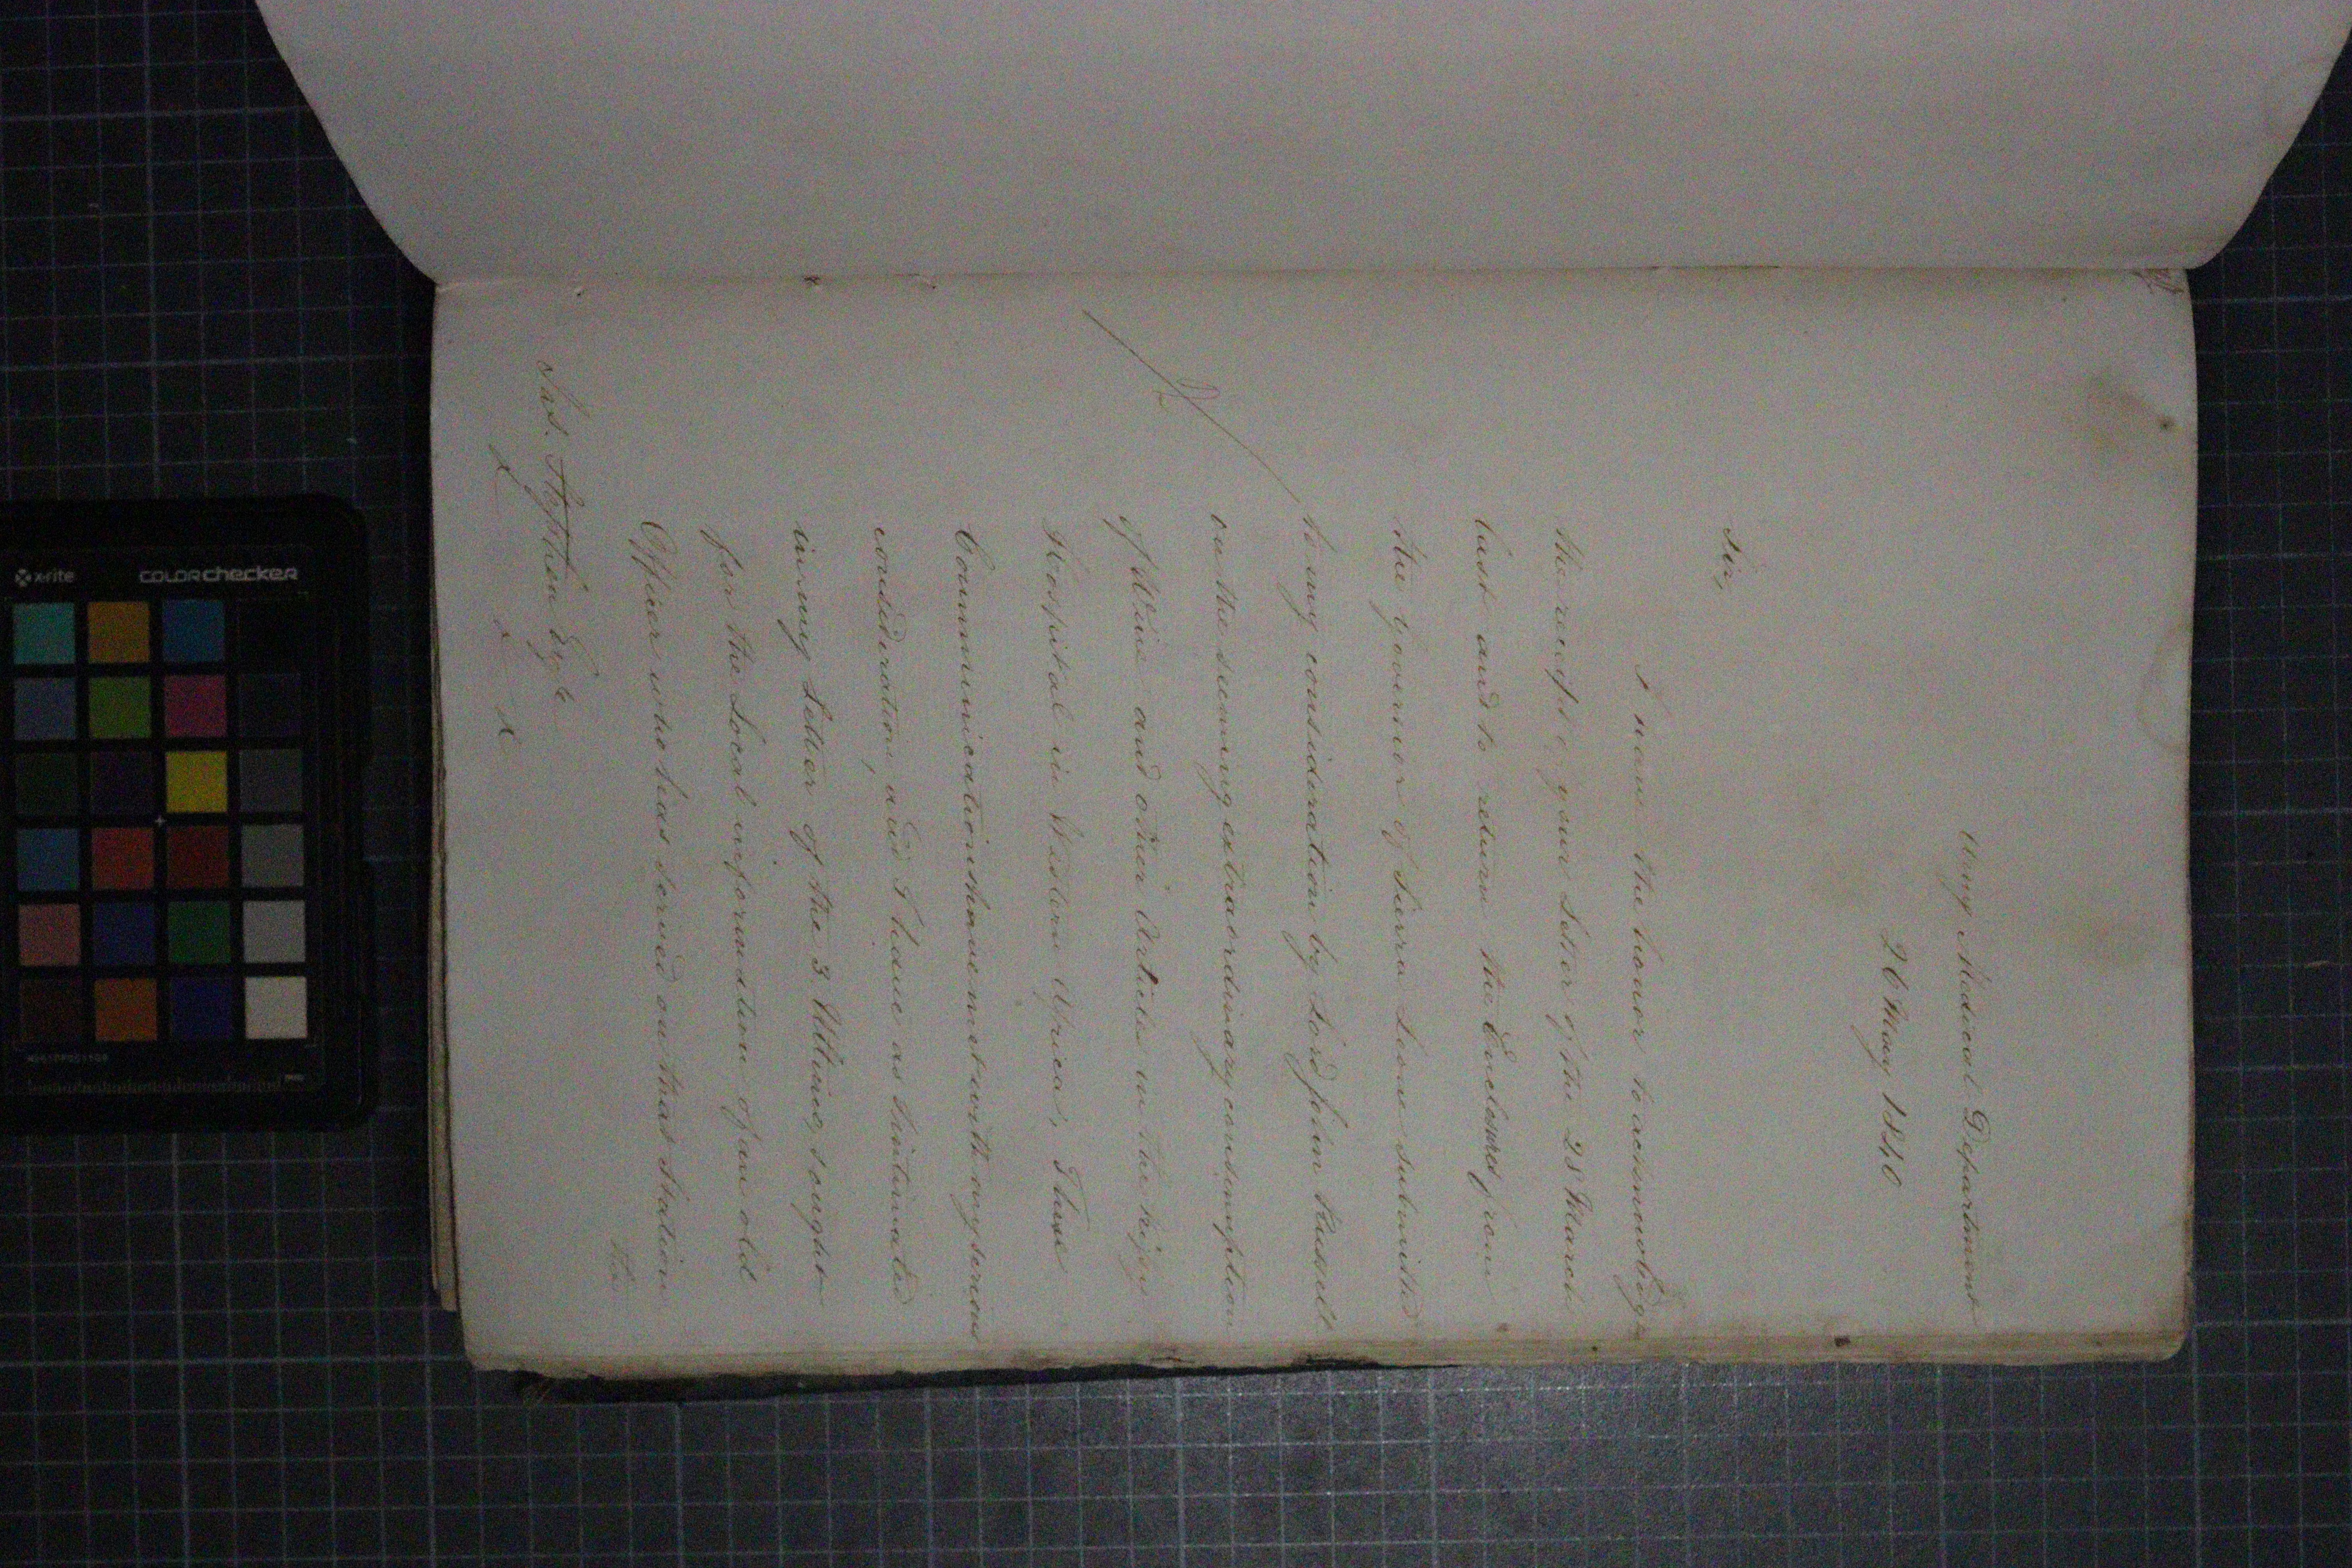 Army Medical Department
26 May 1840
Sir,
I have the honor to acknowledge
the receipt of your Letter of the 28 March
last and to return the Enclosures from
the Governor of Sierra Leone submitted
to my consideration by Lord John Russell
on the seeming extraordinary consumption
of Wine and other Articles in the
Hospital in Western Africa; These
Communications have met with my serious
consideration, and I have as intimated
in my Letter of the 3. Ultimo, sought
for the Local information of an old
Officer who has served on that Station
the
Jas. Stephen Esqre
x x x
x-rite colorchecker